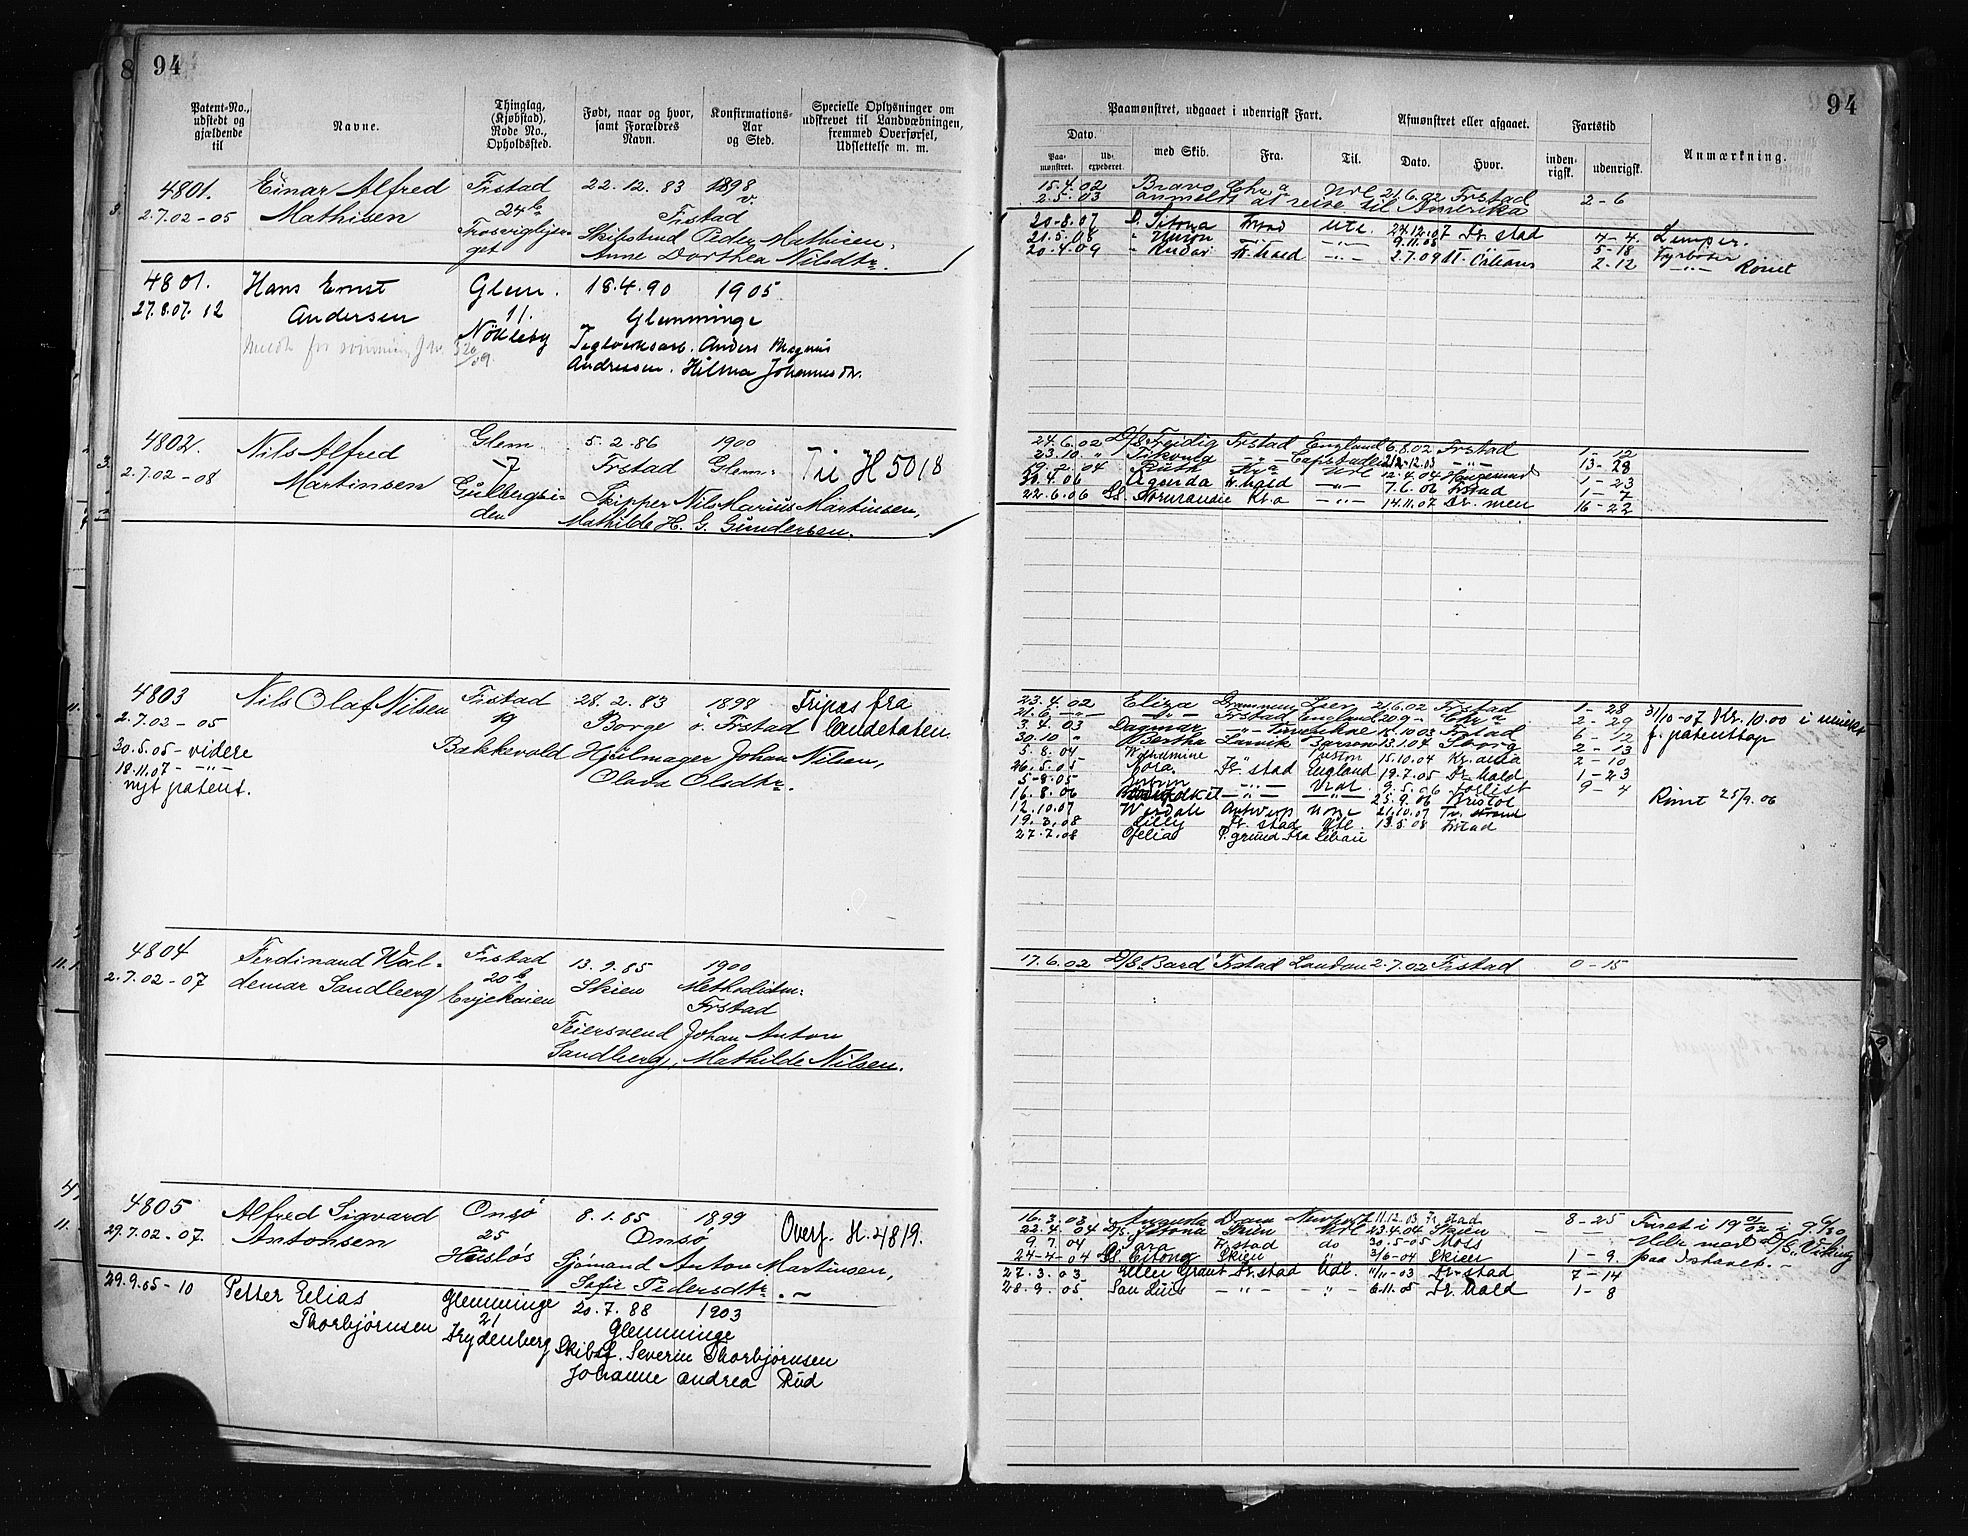 94
Patent-No., udstedt og gjældende til
Navne.
Thinglag, (Kjøbstad), Rode No., Opholdsted.
Født, naar og hvor, samt Forældres Navn.
Konfirmations-Aar og Sted.
Specielle Oplysninger om udskrevet til Landvæbningen, fremmed Overførsel, Udslettelse m. m.
4801. Einar Alfred Frstad 22.12.83 1898
2.7.02-05 Mathisen 24b v. Frstad
Trosviglyjer-
get Skibstmd Peder Mathisen,
Anne Dorthea Nilsdtr.
4801. Hans Ernst Glem. 18.4.90 1905
27.8.07. 12 Andersen 11. Glemminge
Nökleby Teglverksarb. Anders Magnus
Andreasen. Hilma Johannesdtr.
4802. Nils Alfred Glem 5.2.86 1900
2.7.02-08 Martinsen 7 Frstad Glem: Til H 5018
Gulbergsi-
den Skipper Nils Marius Martinsen,
Mathilde H. G. Gundersen.
4803 Nils Olaf Nilsen Frstad 28.2.83 1898 Fripas fra
2.7.02-05 19 Borge ö. Frstad Landetaten
30.5.05-videre Bakkevold Hjulmager Johan Nilsen,
18.11.07 -"- Olava Olsdtr.
nyt patent.
4804 Ferdinand Wal- Frstad 13.9.85 1900
2.7.02-07 demar Sandberg 20b Skien Methodistm:
Evjekaien Frstad
Feiersvend Johan Anton
Sandberg, Mathilde Nilsen.
4805 Alfred Sigvard Onsø 8.1.85 1899
29.7.02-07. Antonsen 25 Onsø Overf. H. 4819.
Huslös Sjømand Anton Martinsen,
Sofie Pedersdtr.
29.9.05-10 Petter Elias Glemminge 20.7.88 1903
Thorbjørnsen 21 Glemminge
Frydenberg Skibsf. Severin Thorbjørnsen
Johanne Andrea Rud
94
Paamønstret, udgaaet i udenrigsk Fart.
Afmønstret eller afgaaet.
Fartstid
Anmærkning.
Dato.
Paa-mønstret. Ud-expederet. med Skib. Fra. Til. Dato. Hvor. inden-rigsk. udenrigsk.
15.4.02 Bravo Chra Url 21.6.02 Frstad 2-6
2.5.03 anmeldt at reise til Amerika
20-8.07 D. Sitona Frstad Utl. 24.12.07 Fr. stad 4-4. Lemper.
21.5.08 " Huson -"- 9.11.08 5-18 Fyrböter
20.4.09 " Fr. hald -"- 2.7.09 N. Orleans 2-12 -"- Römt
24.6.02 D/S Freidig Frstad England 6.8.02 Frstad 1-12
23.10. " -"- -"- 13-28
19.2.04 Ruth Kra Url 12.4.04 Haugesund 1-23
30.4.06 Agenda Fr. hald -"- 7.6.06 Frstad 1-7
22.6.06 Kr.a -"- 14.11.07 Dr. men 16-22
23.4.02 Eliza Drammen 21.6.02 Frstad 1-28 31/10-07 Kr. 10.00 i mulkt
21.6 -"- -"- Frstad England 20.9- Chra 2-29 f. patenttap
3.4.03 Dagmar -"- 15.10.03 Frstad 6-12
30.10 " Bertha Larvik 13.1.04 Sborg 2-13
5.8.04 Wilhelmine " 15.10.04 Kr.ania 2-10
26.5.05 Nora. Fr. stad England 19.7.05 Fr. hald 1-23
5-8.05 -"- Vest. 9.5.06 Forlist 9-4
16.8.06 -"- -"- 25.9.06 Bristol Römt 25/9.06
12.10.07 Werdale Antwerp Norge 21.10.07
19.3.08 Lilly Fr. stad Utl. 13.5.08 Frstad
27.7.08 Ofelia P. grund Libau
17.6.02 D/S. Bard Frstad London 2.7.02 Frstad 0-15
16.3.03 Augusta Newport 11.12.03 Fr. stad 8-25
23.4.04 D/S. Sitona Skien Utl 23.4.04 Skien
9.7.04 Sara Fr. stad do 30.5-05 Moss
24-4-04 D/S. Sitona Skien " 3/6-04 Skien 1-9. paa Ishavet.-
27.3.03 Ellen Grant Fr. stad Udl. 11/11-03 Fr. stad 7-14
28.9.05. San Luis -"- -"- 6.11.05 Fr. hald 1-8